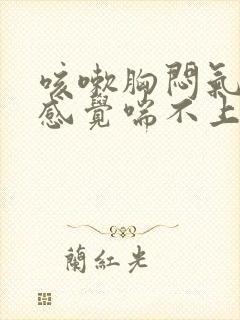 咳嗽胸悶氣
感覺喘不上
蘭紅光